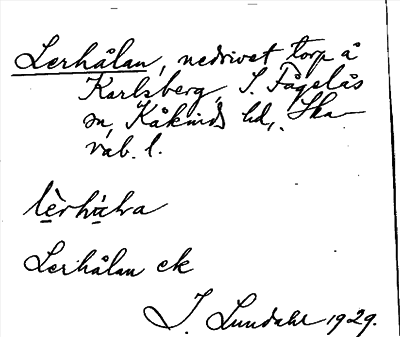 Lerhålan, nedrivet torp å
Karlsberg, S. Fågelås
sn, Kåkinds hd, Ska-
rab. l.
lèrhå̀lna
Lerhålan ek
I. Lundahl 1929.